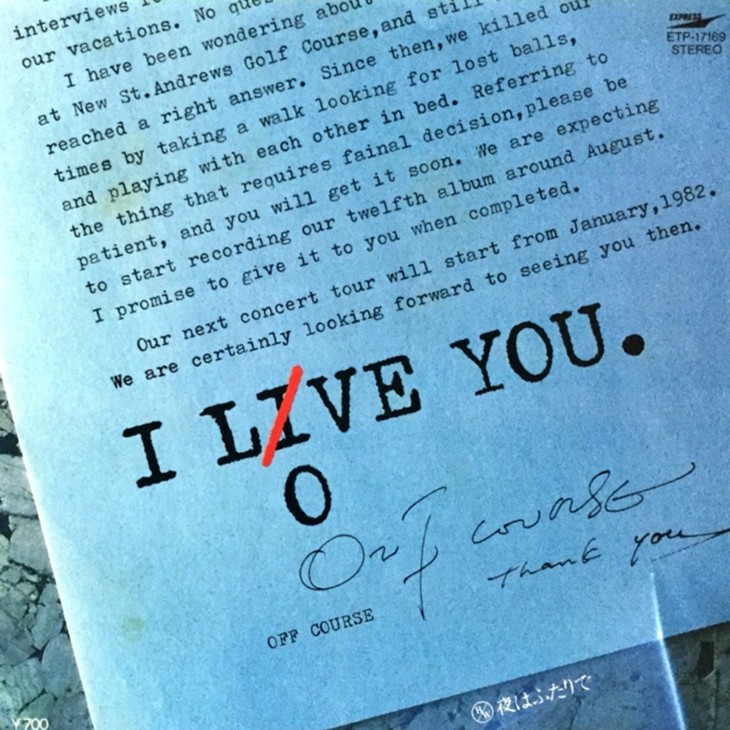 interviews
our vacations. No
I have been wondering about
at New St.Andrews Golf Course,and still
reached a right answer. Since then,we killed our
times by taking a walk looking for lost balls,
and playing with each other in bed. Referring to
the thing that requires fainal decision,please be
patient, and you will get it soon. We are expecting
to start recording our twelfth album around August.
I promise to give it to you when completed.
Our next concert tour will start from January,1982.
We are certainly looking forward to seeing you then.
I LIVE YOU.
O
Off course
thank you
OFF COURSE
EXPRESS
ETP-17169
STEREO
B/W 夜はふたりで
¥700